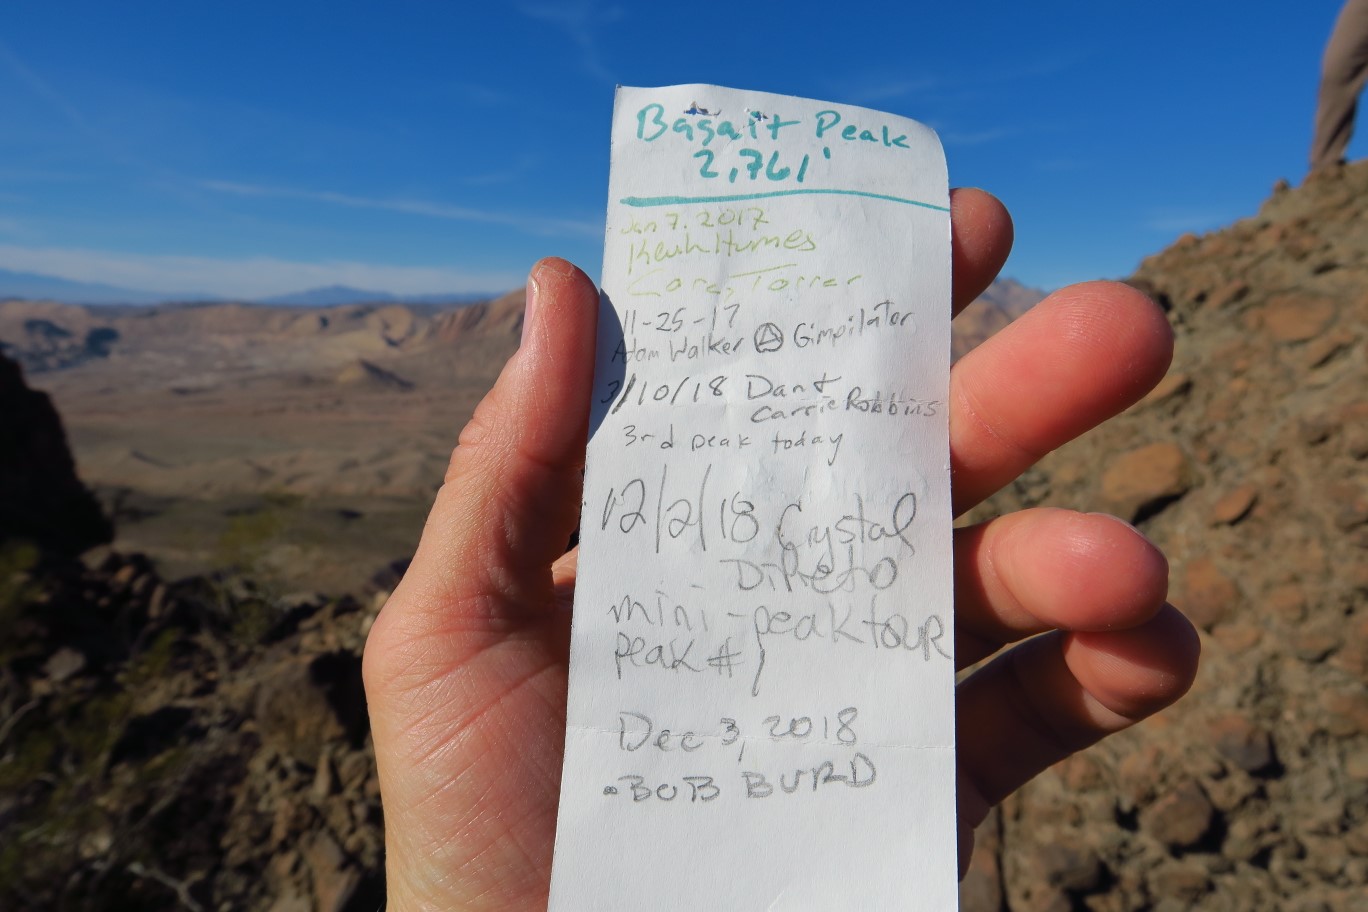 Basalt Peak
2,761'
Jan 7, 2017
Humes
Torrer
11-25-17
Adam Walker Ⓐ Gimpilator
3/10/18 Dan +
Carrie Robbins
3rd peak today
12/2/18 Crystal
mini-peak tour
peak #1
Dec 3, 2018
BOB BURD